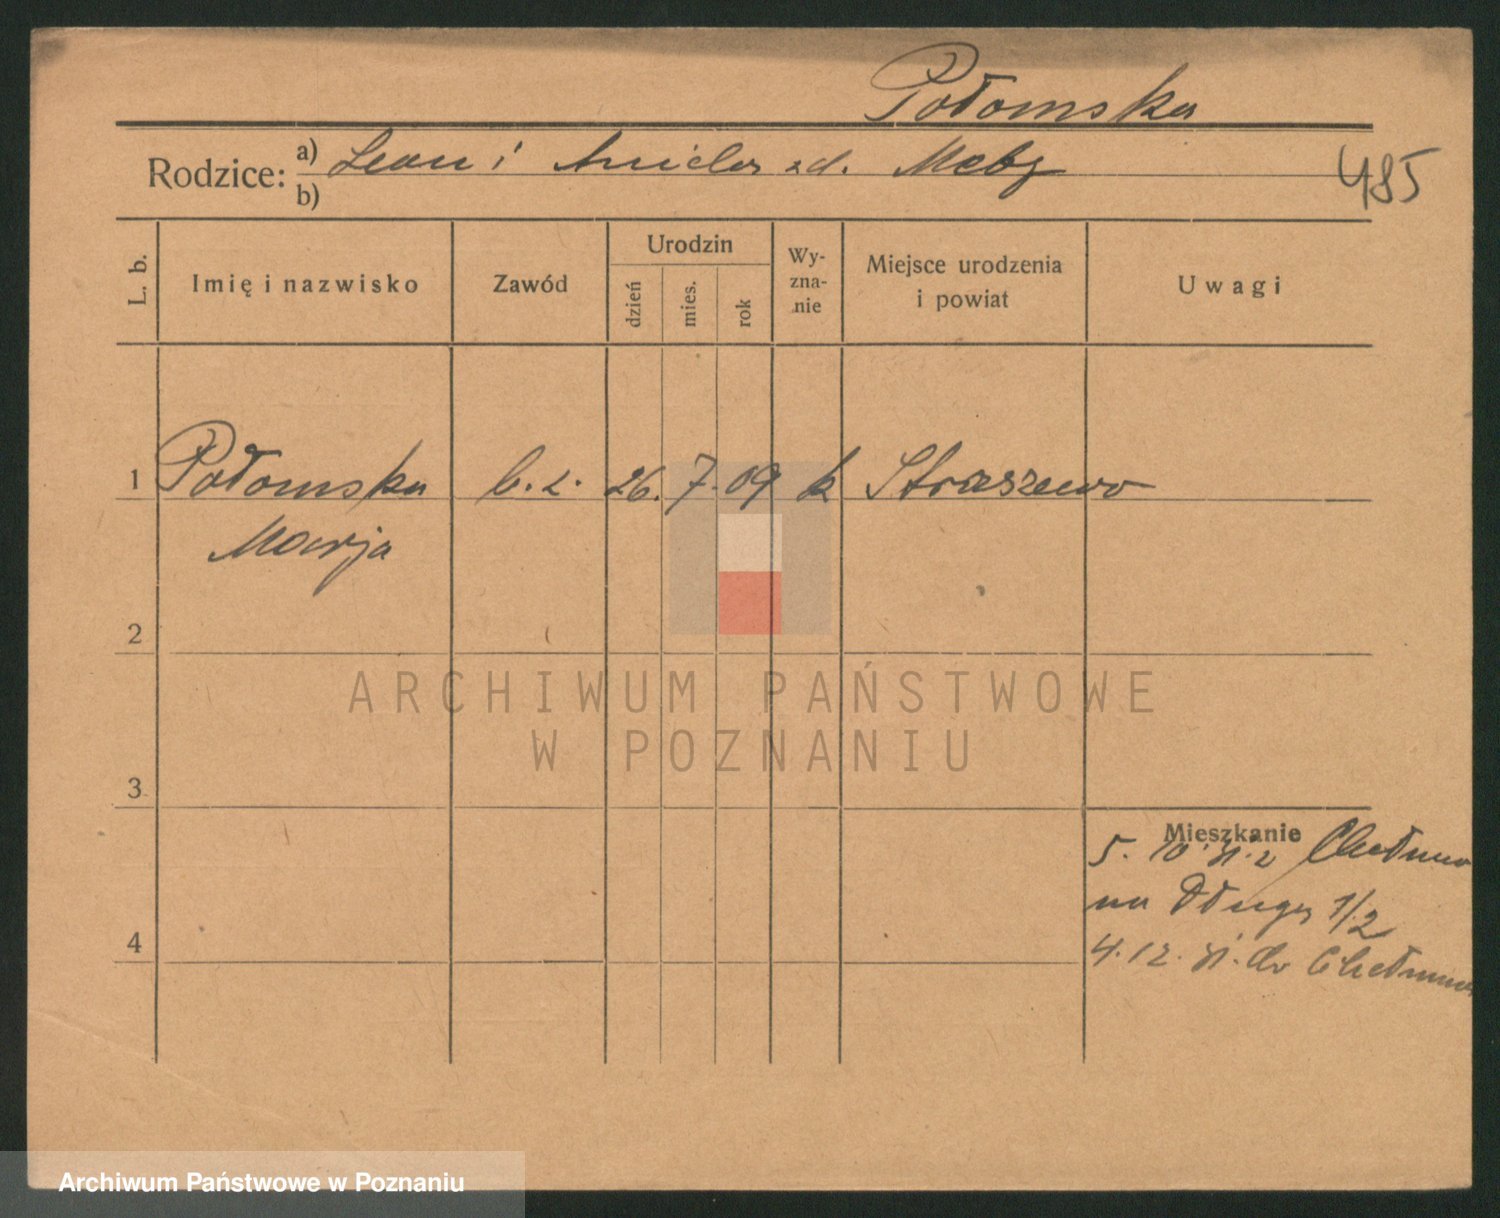 Połomska
Rodzice: a) Leon i Aniela zd.
b)
485
L. b.
Imię i nazwisko
Zawód
Urodzin
dzień
mies.
rok
Wy-
zna-
nie
Miejsce urodzenia
i powiat
Uwagi
1 Połomska b. z. 26. 7. 09 k Straszewo
Marja
2
ARCHIWUM PAŃSTWOWE
W POZNANIU
3
Mieszkanie
5. 10. 31. z Chełmna
na Długa 1/2
4
4. 12. 31. do Chełmna
Archiwum Państwowe w Poznaniu